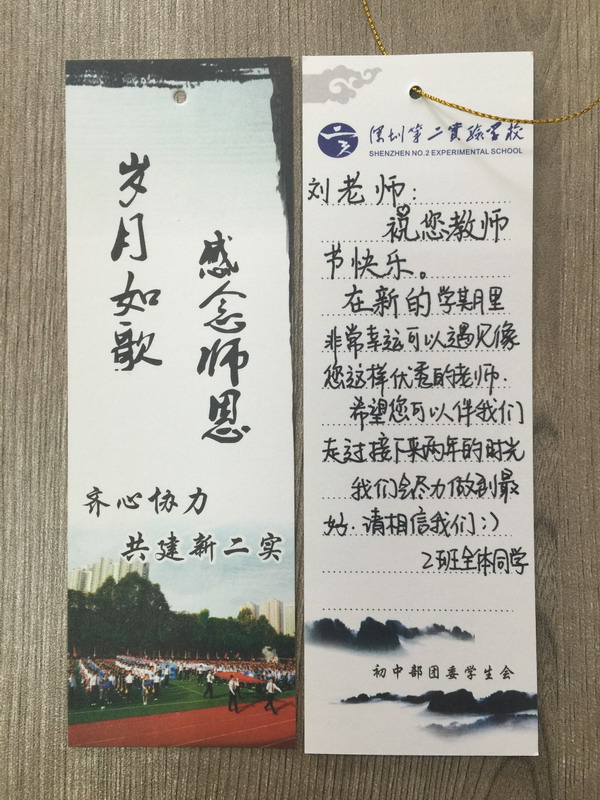 岁月如歌
感念师恩
齐心协力
共建新二实
深圳第二实验学校
SHENZHEN NO.2 EXPERIMENTAL SCHOOL
刘老师:
祝您教师
节快乐。
在新的学期里
非常幸运可以遇见像
您这样优秀的老师.
希望您可以伴我们
走过接下来两年的时光
我们会尽力做到最
好.请相信我们:)
2班全体同学
初中部团委学生会